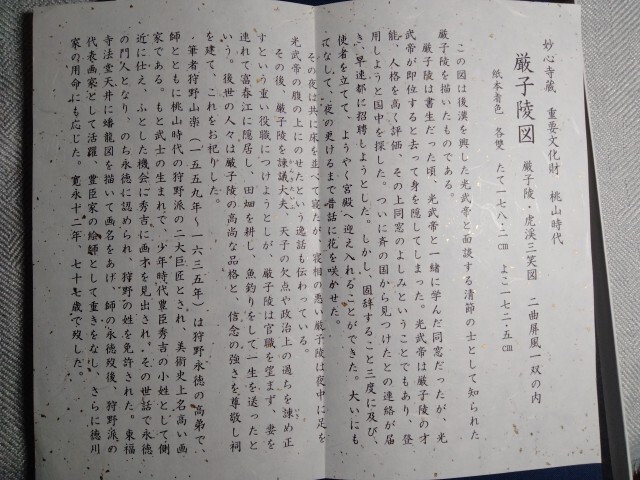 妙心寺蔵　重要文化財　桃山時代
厳子陵図　厳子陵・虎渓三笑図　二曲屏風一双の内
紙本着色　各隻　たて一七八・二㎝　よこ一七二・五㎝
この図は後漢を興した光武帝と面談する清節の士として知られた
厳子陵を描いたものである。
厳子陵は書生だった頃、光武帝と一緒に学んだ同窓だったが、光
武帝が即位すると去って身を隠してしまった。光武帝は厳子陵の才
能、人格を高く評価、その上同窓のよしみということでもあり、登
用しようと国中を探した。ついに斉の国から見つけたとの連絡が届
き、早速都に招聘しようとした。しかし、固辞すること三度に及び、
使者を立てて、ようやく宮殿へ迎え入れることができた。大いにも
てなして、夜の更けるまで昔話に花を咲かせた。
その夜は共に床を並べて寝たが、寝相の悪い厳子陵は夜中に足を
光武帝の腹の上にのせたという逸話も伝わっている。
その後、厳子陵を諫議大夫、天子の欠点や政治上の過ちを諫め正
すという重い役職につけようとしが、厳子陵は官職を望まず、妻を
連れて富春江に隠居し、田畑を耕し、魚釣りをして一生を送ったと
いう。後世の人々は厳子陵の高尚な品格と、信念の強さを尊敬し祠
を建て、これをお祀りした。
・筆者狩野山楽（一五五九年～一六三五年）は狩野永徳の高弟で、
師とともに桃山時代の狩野派の二大巨匠とされ、美術史上名高い画
家である。もと武士の生まれで、少年時代豊臣秀吉の小姓として側
近に仕え、ふとした機会に秀吉に画才を見出され、その世話で永徳
の門人となり、のち永徳に認められ、狩野の姓を免許された。東福
寺法堂天井に蟠龍図を描いて画名をあげ、師の永徳歿後、狩野派の
代表画家として活躍　豊臣家の絵師として重きをなし、さらに徳川
家の用命にも応じた。寛永十二年　七十七歳で歿した。